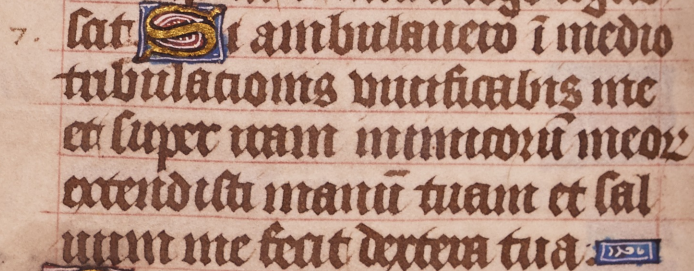 7.
scit Si ambulavero ī medio
tribulacionis vivificabis me
et super iram inimicorū meor
extendisti manū tuam et sal
uum me fecit dextera tua